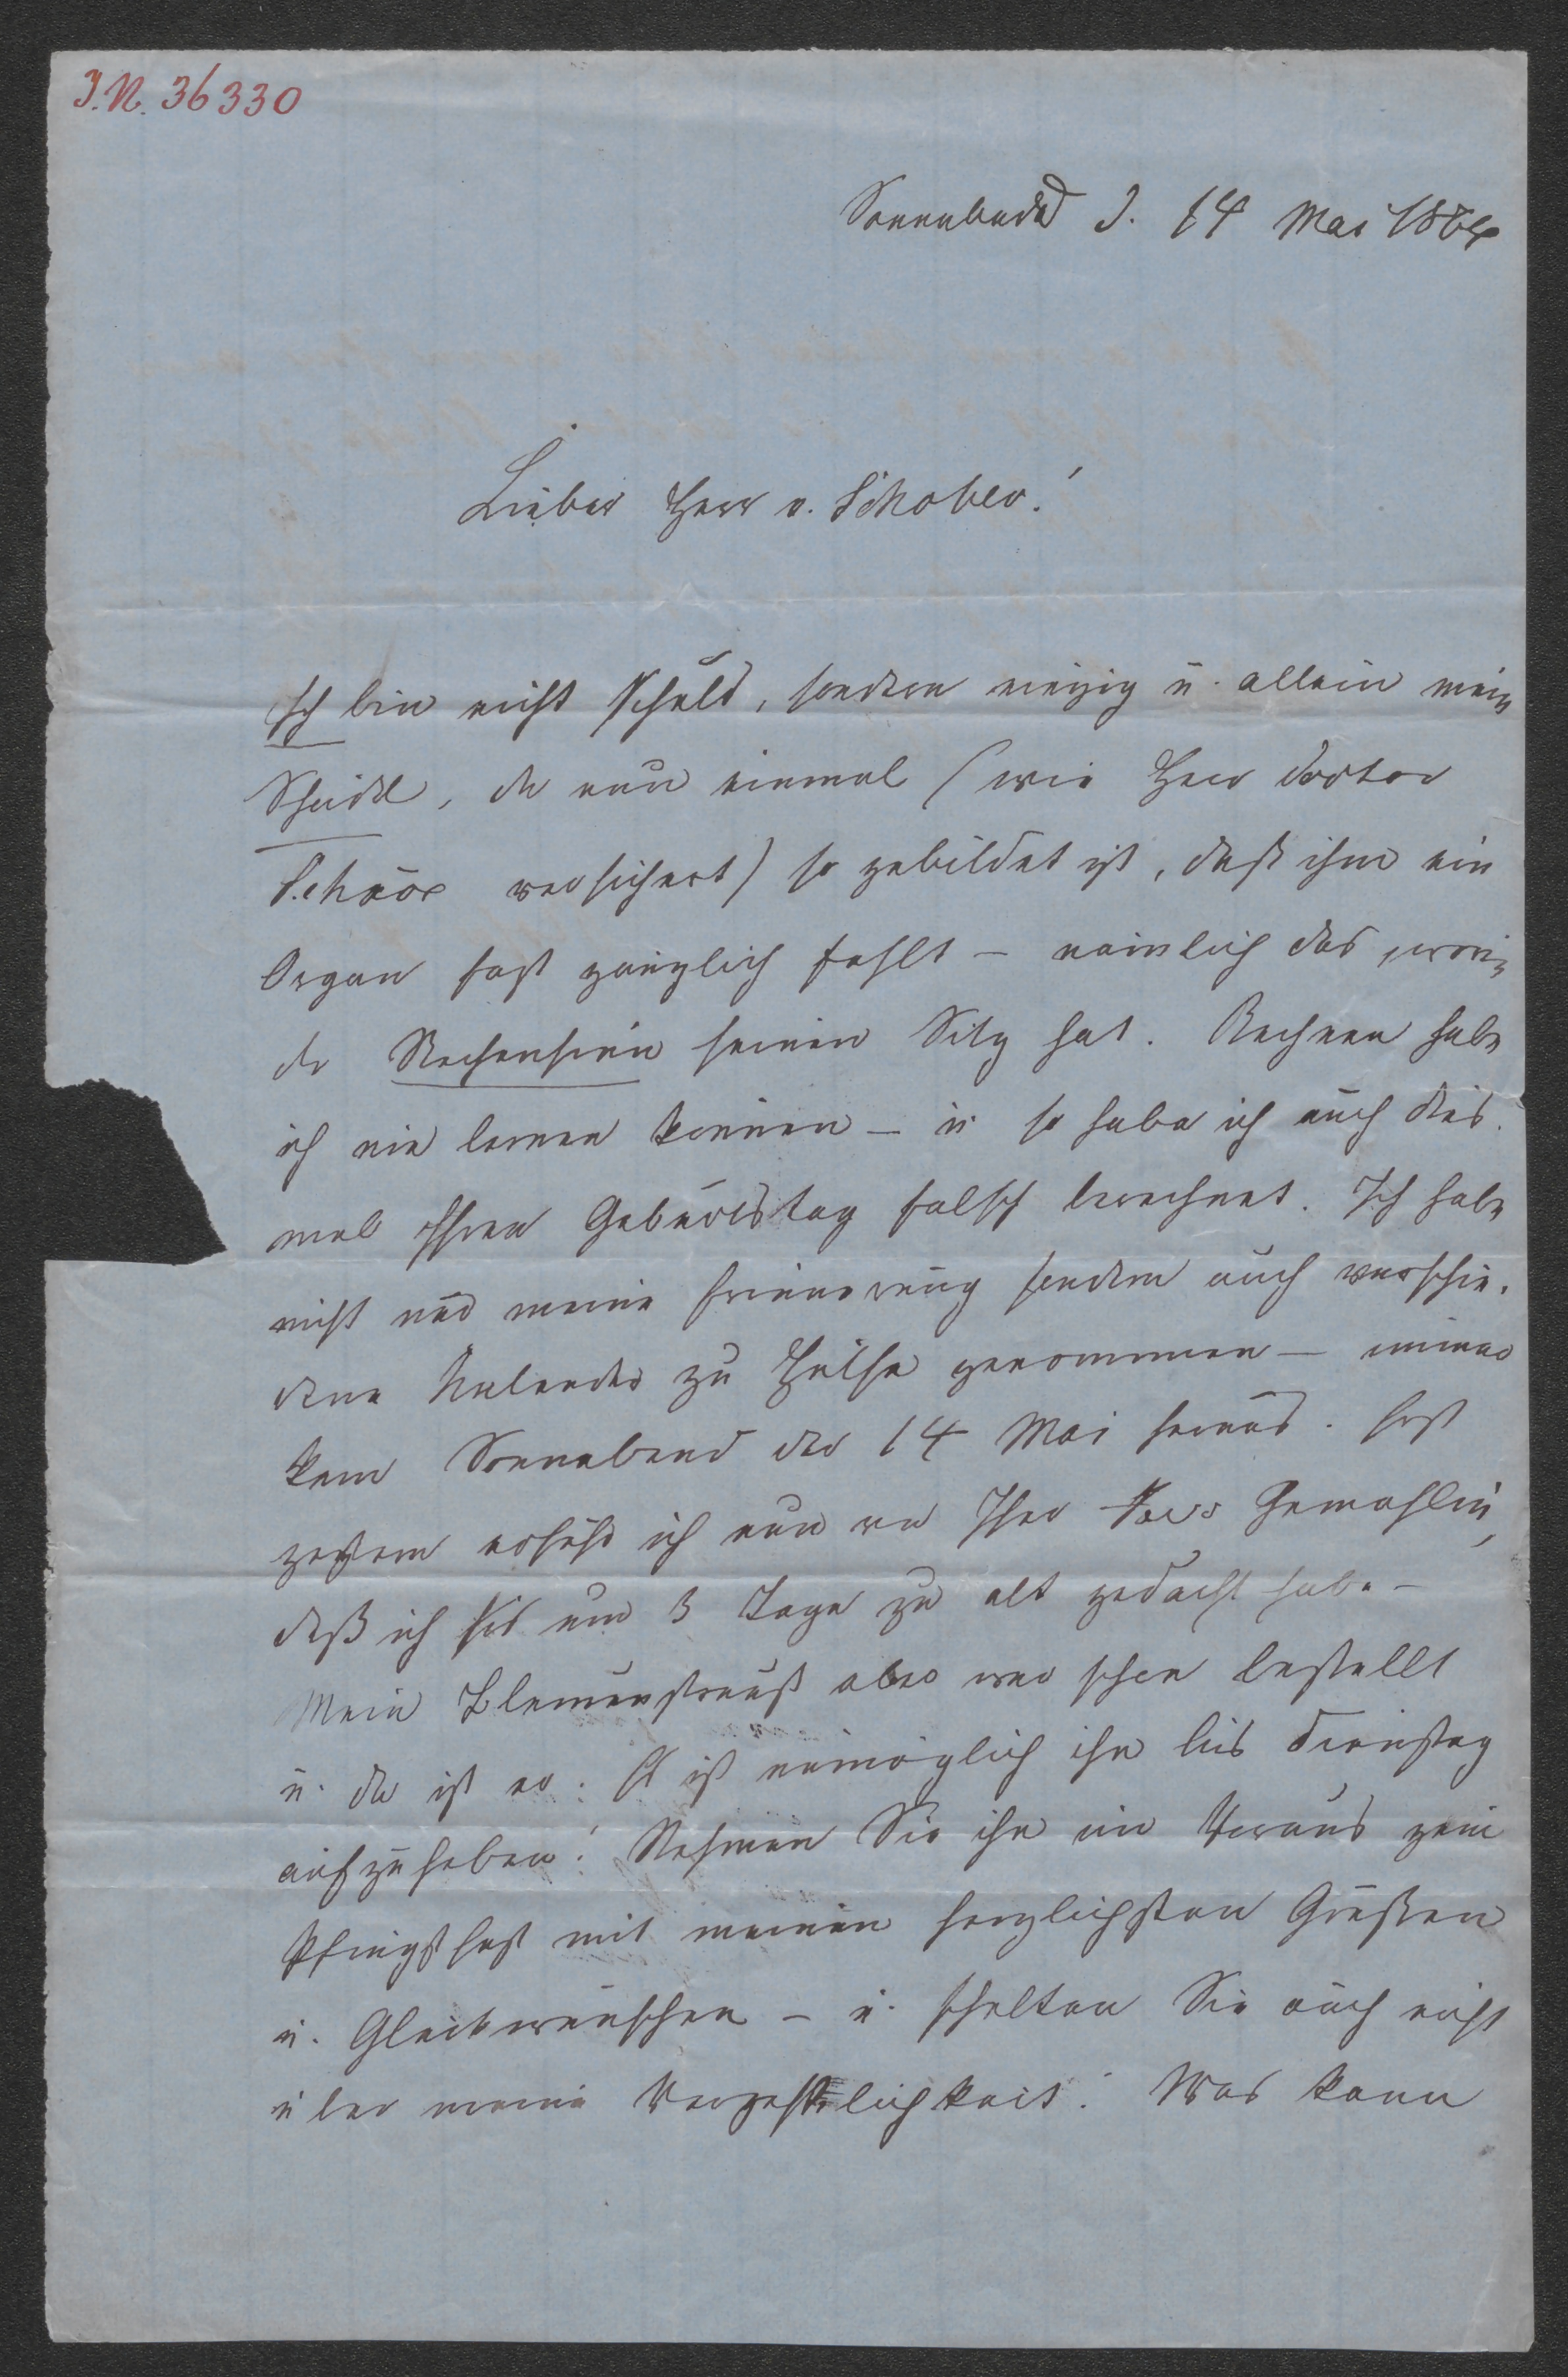 I.N. 36330
Sonnabend d. 14 Mai 1864
Lieber Herr v. Schober!
Ich bin nicht schuld, sondern einzig u. allein mein
Schädel, der nun einmal (wie Herr Doctor
versichert) so gebildet ist, daß ihm ein
Organ fast gänzlich fehlt – nämlich das, worin
der Rechensinn seinen Sitz hat. Rechnen habe
ich nie lernen können – u. so habe ich auch dies-
mal Ihren Geburtstag falsch berechnet. Ich habe
nicht nur meine Erinnerung sondern auch verschie-
dene Kalender zu Hülfe genommen – immer
kam Sonnabend der 14 Mai heraus. Erst
gestern erfuhr ich nun von Ihrer Frau Gemahlin,
daß ich Sie um 3 Tage zu alt gedacht habe –
Mein Blumenstrauß aber war schon bestellt
u. da ist er. Es ist unmöglich ihn bis Dienstag
aufzuheben! Nehmen Sie ihn im Voraus zum
Pfingstfest mit meinen herzlichsten Grüßen
u. Glückwünschen – u. schelten Sie auch nicht
über meine Vergeßlichkeit. Was kann